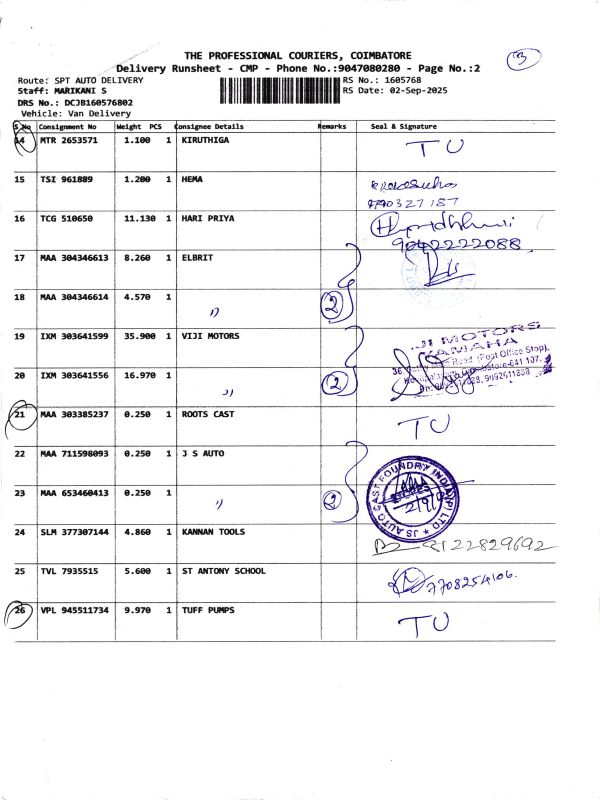 THE PROFESSIONAL COURIERS, COIMBATORE
3
Delivery Runsheet - CMP - Phone No.:9047080280 - Page No.:2
Route: SPT AUTO DELIVERY
RS No.: 1605768
Staff: MARIKANI S
RS Date: 02-Sep-2025
DRS No.: DCJB160576802
Vehicle: Van Delivery
S.No Consignment No Weight PCS Consignee Details Remarks Seal & Signature
14 MTR 2653571 1.100 1 KIRUTHIGA TU
15 TSI 961889 1.200 1 HEMA
16 TCG 510650 11.130 1 HARI PRIYA
9042222088
17 MAA 304346613 8.260 1 ELBRIT
18 MAA 304346614 4.570 1 〃 2
19 IXM 303641599 35.900 1 VIJI MOTORS
JI MOTORS
YAMAHA
Road (Post Office Stop),
20 IXM 303641556 16.970 1 〃 2
21 MAA 303385237 0.250 1 ROOTS CAST TU
22 MAA 711598093 0.250 1 J S AUTO
JS AUTO CAST FOUNDRY INDIA (P) LTD
23 MAA 653460413 0.250 1 〃 2
24 SLM 377307144 4.860 1 KANNAN TOOLS 9122829692
25 TVL 7935515 5.600 1 ST ANTONY SCHOOL
26 VPL 945511734 9.970 1 TUFF PUMPS TU